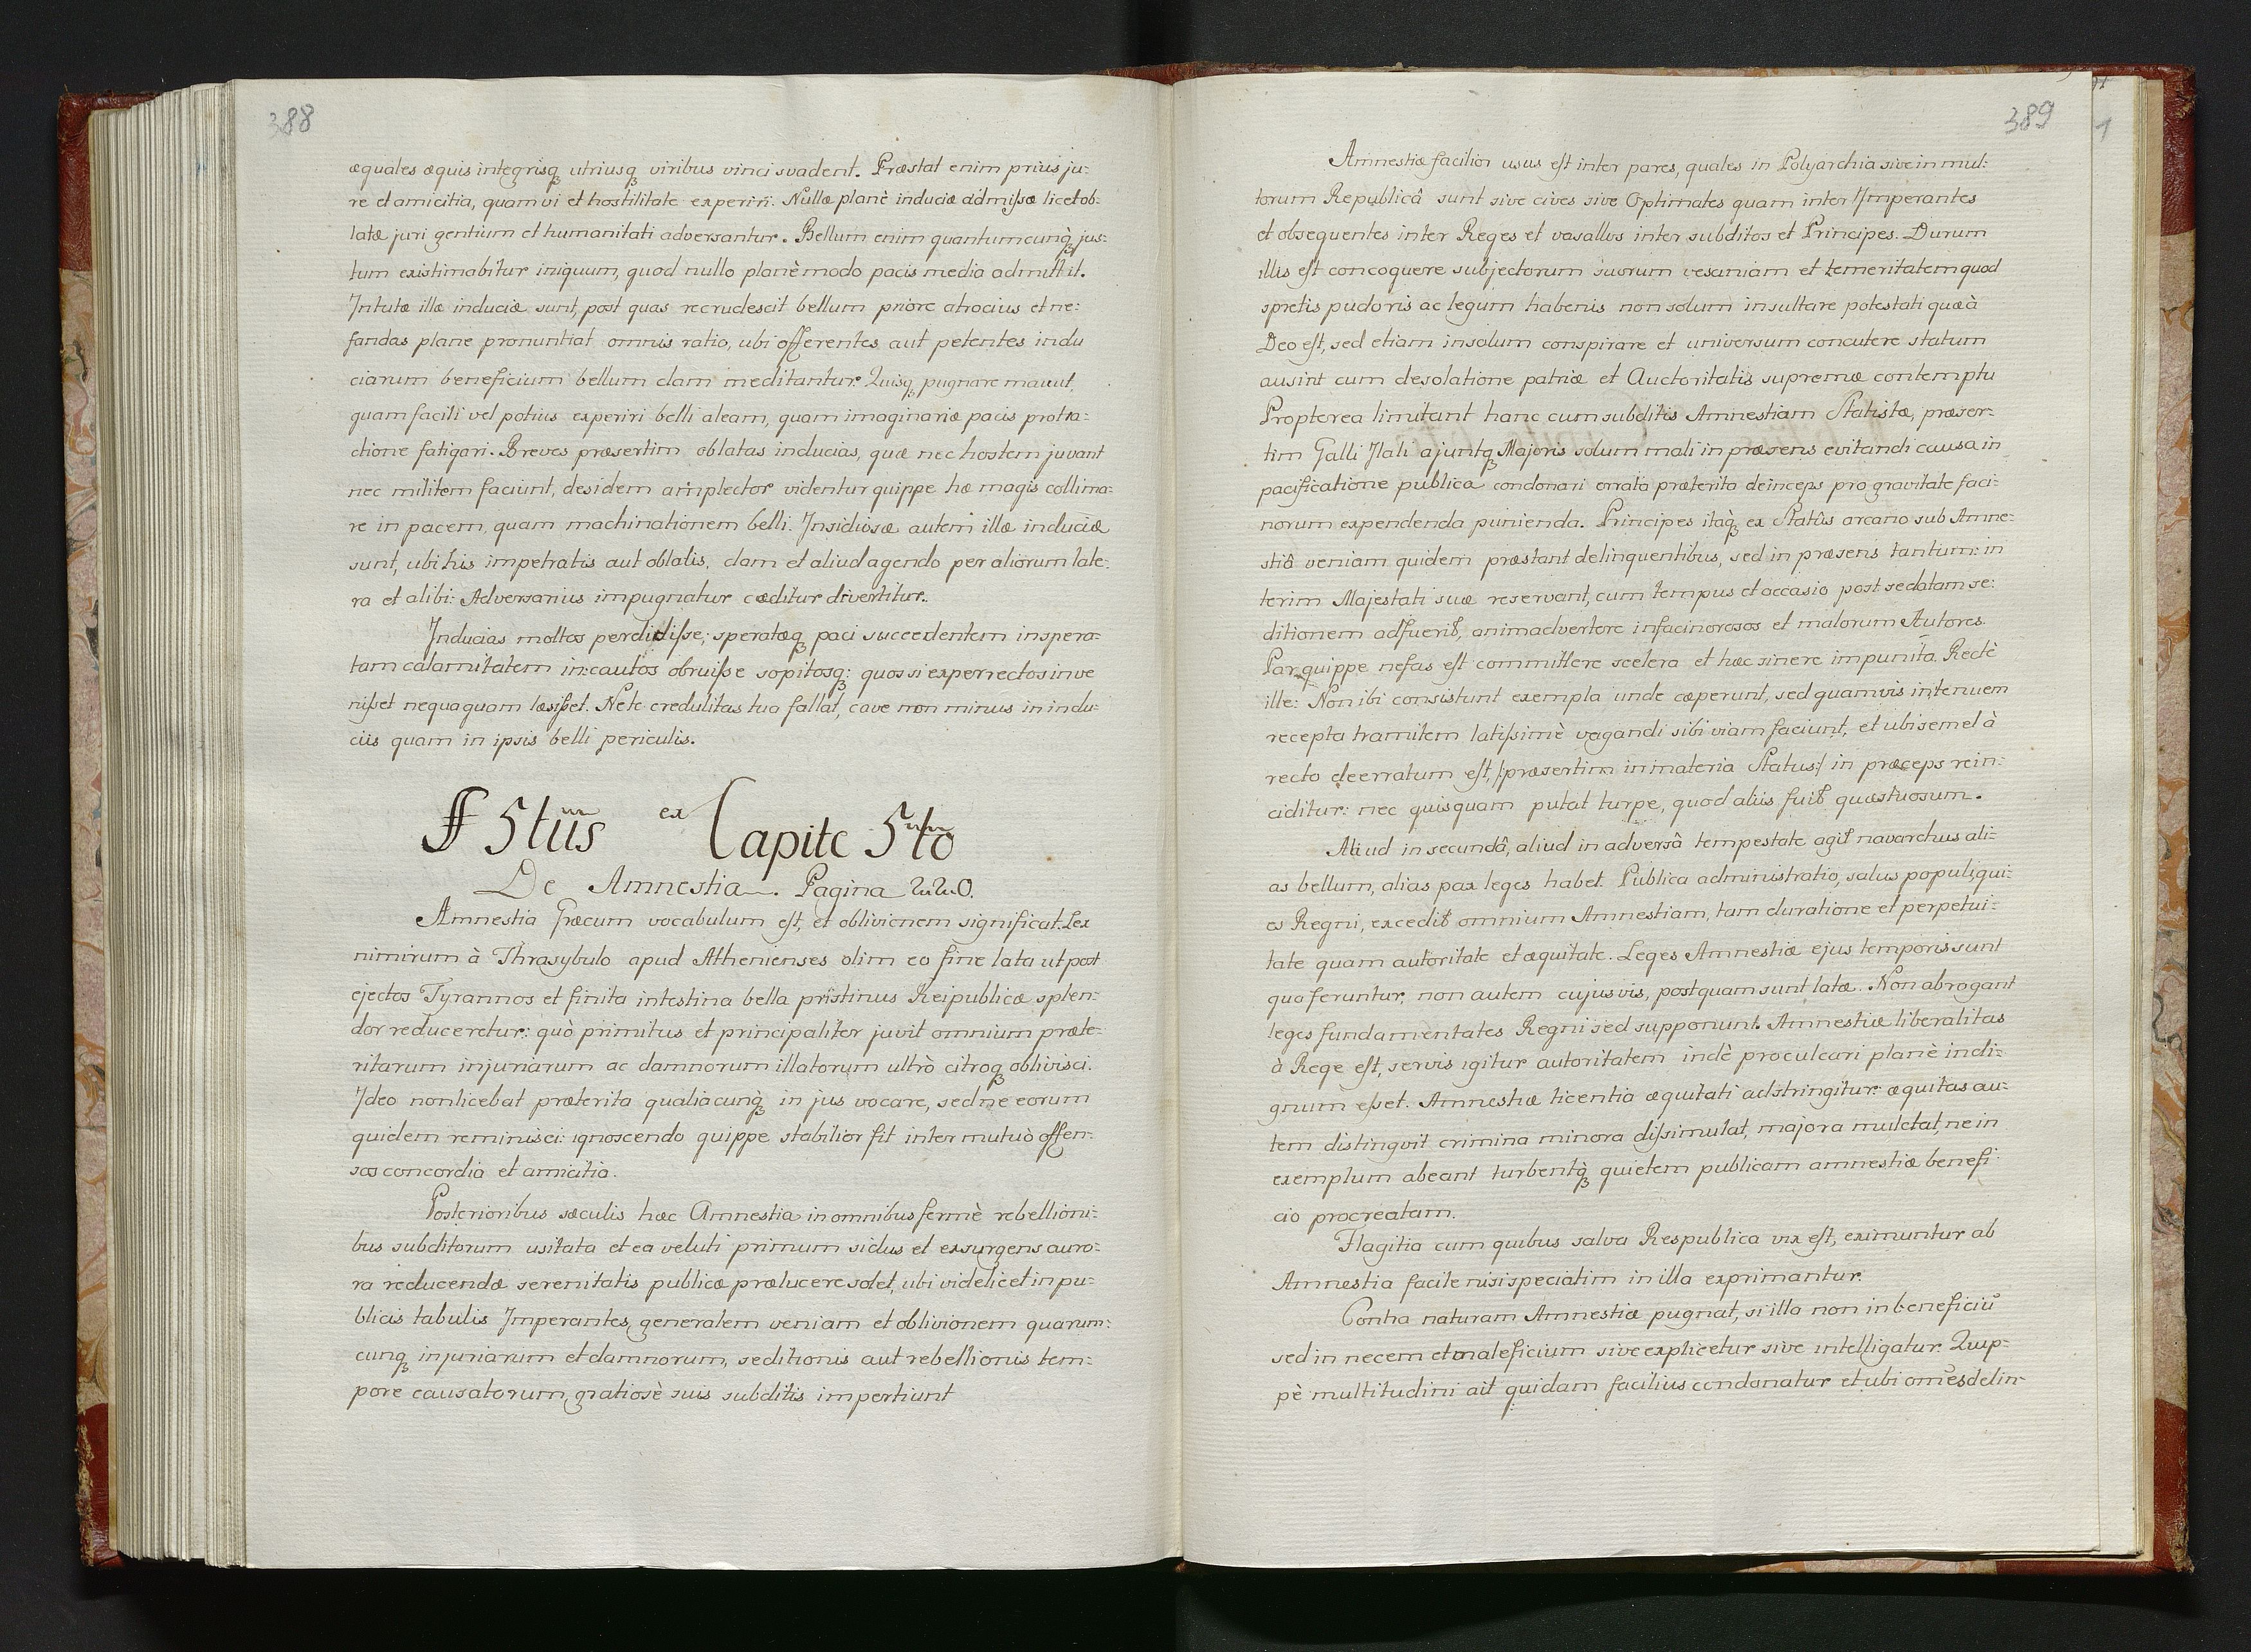 388
æquales æquis integrisq utriusq viribus vinci svadent. Præstat enim prius ju:
re et amicitia, quam vi et hostilitate experiri. Nullæ planè induciæ admissæ licet ob:
latæ juri gentium et humanitati adversantur. Bellum enim quantumcunq jus:
tum existimabitur iniquum, quod nullo planè modo pacis media admittit.
Intutæ illæ induciæ sunt, post quas recrudescit bellum priore atrocius et ne:
fandas plane pronuntiat omnis ratio, ubi offerentes aut petentes indu
ciarum beneficium bellum clam meditantur. Quisq pugnare mavult,
quam facili vel potius experiri belli aleam, quam imaginariæ pacis protra:
ctione fatigari. Breves præsertim oblatas inducias, quæ nec hostem juvant
nec militem faciunt, desidem amplector videntur quippe hæ magis collima:
re in pacem, quam machinationem belli. Insidiosæ autem illæ induciæ
sunt, ubi his impetratis aut oblatis, clam et aliud agendo per aliorum late:
ra et alibi: Adversarius impugnatur cæditur divertitur.
Inducias moltos perdidisse; speratæq paci succedentem inspera:
tam calamitatem incautos obruisse sopitosq: quos si experrectos inve
nisset nequaquam læsisset. Nete credulitas tua fallat, cave non minus in indu:
ciis quam in ipsis belli periculis.
ff 5tus ex Capite 5to
De Amnestia. Pagina 220.
Amnestia Græcum vocabulum est, et oblivionem significat. Lex
nimirum à Thrasybulo apud Athenienses olim eo fine lata ut post
ejectos Tyrannos et finita intestina bella pristinus Reipublicæ splen:
dor reduceretur: quò primitus et principaliter juvit omnium præte:
ritarum injuriarum ac damnorum illatorum ultrò citroq oblivisci.
Ideo non licebat præterita qualiacunq in jus vocare, sed ne eorum
quidem reminisci: ignoscendo quippe stabilior fit inter mutuò offen:
sos concordia et amicitia.
Posterioribus sæculis hæc Amnestia in omnibus fermè rebellioni:
bus subditorum usitata et ea veluti primum sidus et exsurgens auro:
ra reducendæ serenitatis publicæ prælucere solet, ubi videlicet in pu:
blicis tabulis Imperantes, generalem veniam et oblivionem quarum:
cunq injuriarum et damnorum, seditionis aut rebellionis tem:
pore causatorum gratiosè suis subditis impertiunt
389
1
Amnestiæ facilior usus est inter pares, quales in Polyarchia sive in mul:
torum Republicâ sunt sive cives sive Optimates quam inter Imperantes
et obsequentes inter Reges et vasallos inter subditos et Principes. Durum
illis est concoquere subjectorum suorum vesaniam et temeritatem quod
spretis pudoris ac legum habenis non solum insultare potestati quæ à
Deo est, sed etiam in solum conspirare et universum concutere statum
ausint cum desolatione patriæ et Auctoritatis supremæ contemptu
Propterea limitant hanc cum subditis Amnestiam Statistæ, præser:
tim Galli Itali ajuntq Majoris solum mali in præsens evitandi causa in
pacificatione publica condonari errata præterita deinceps pro gravitate faci:
norum expendenda punienda. Principes itaq ex Statûs arcano sub Amne:
stiâ veniam quidem præstant delinquentibus, sed in præsens tantum: in
terim Majestati suæ reservant, cum tempus et occasio post sedatam se:
ditionem adfuerit, animadvertere in facinorosos et malorum Autores.
Par quippe nefas est committere scelera et hæc sinere impunita. Rectè
ille: Non ibi consistunt exempla unde cæperunt, sed quamvis in tenuem
recepta tramitem latissimè vagandi sibi viam faciunt, et ubi semel à
recto deerratum est, /:præsertim in materia Status:/ in præceps rein:
ciditur: nec quisquam putat turpe, quod aliis fuit quæstuosum.
Aliud in secundâ, aliud in adversâ tempestate agit navarchus ali:
as bellum, alias pax leges habet. Publica administratio, salus populi, qui:
es Regni, excedit omnium Amnestiam, tam duratione et perpetui:
tate quam autoritate et æquitate. Leges Amnestiæ ejus temporis sunt
quo feruntur, non autem cujusvis, postquam sunt latæ. Non abrogant
leges fundamentales Regni sed supponunt. Amnestiæ liberalitas
à Rege est, servis igitur autoritatem indè proculcari planè indi:
gnum esset. Amnestiæ licentia æquitati adstringitur: æquitas au:
tem distinguit crimina minora dissimulat, majora mulctat, ne in
exemplum abeant turbentq quietem publicam amnestiæ benefi:
cio procreatam.
Flagitia cum quibus salva Respublica vix est, eximuntur ab
Amnestia facile nisi speciatim in illa exprimantur.
Contra naturam Amnestiæ pugnat, si illa non in beneficiū
sed in necem et maleficium sive explicetur sive intelligatur. Quip:
pè multitudini ait quidam facilius condonatur et ubi om̄es delin: